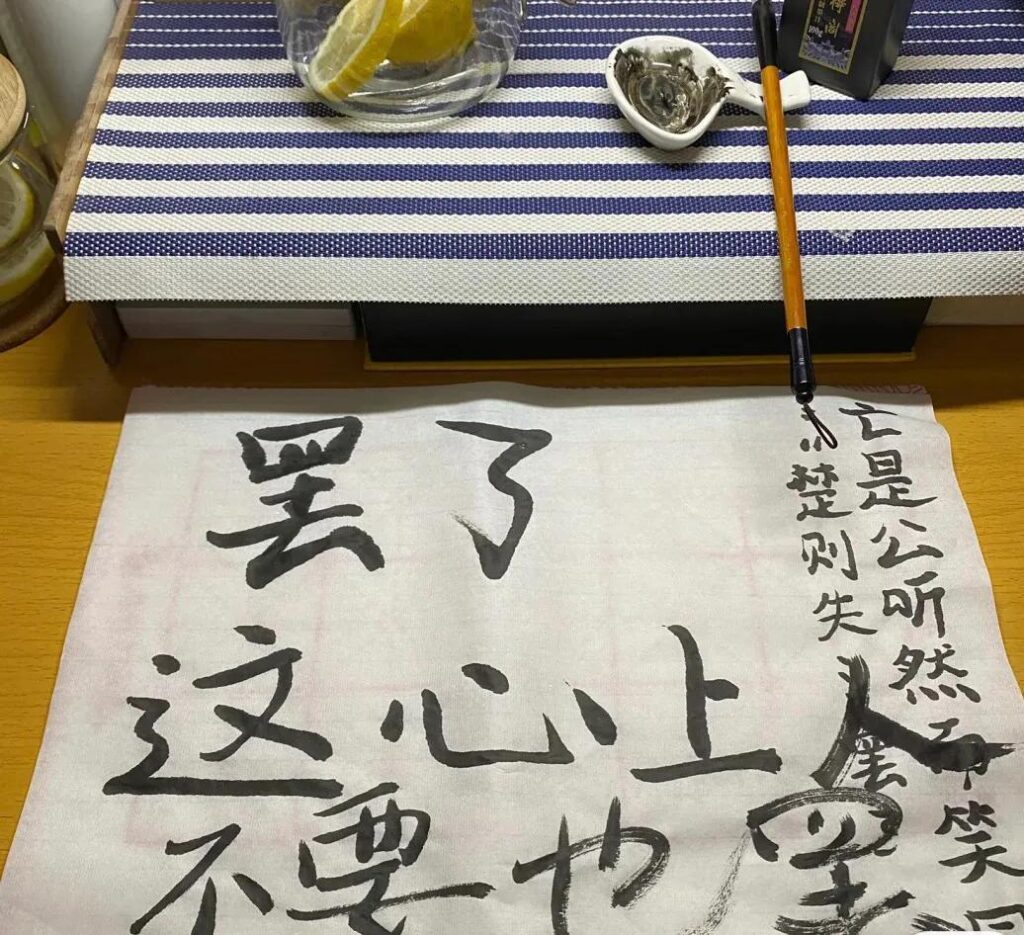 罢了
这心上人
不要也罢
亡是公听然而笑
楚则失
罢